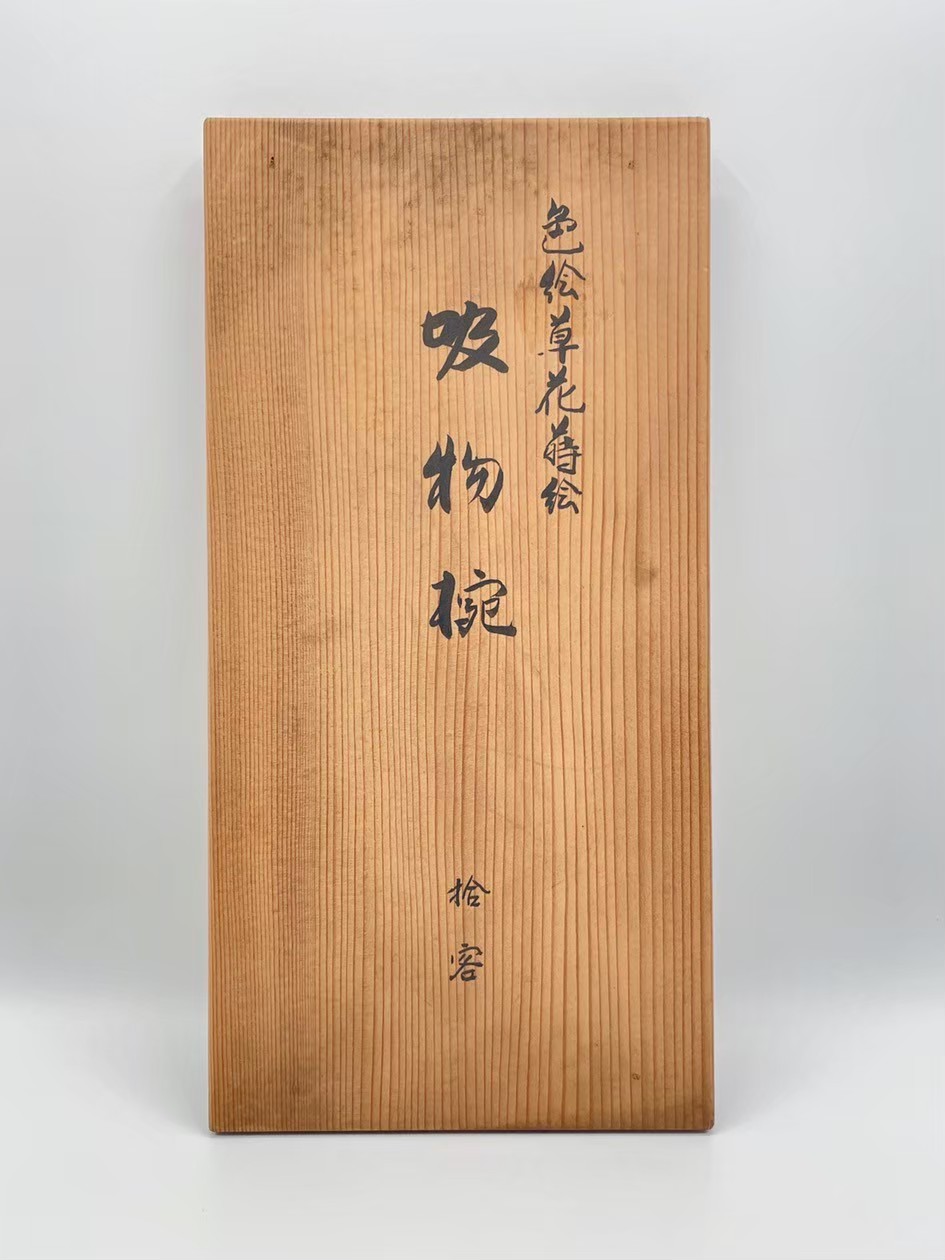 色絵草花蒔絵
吸物椀
拾客